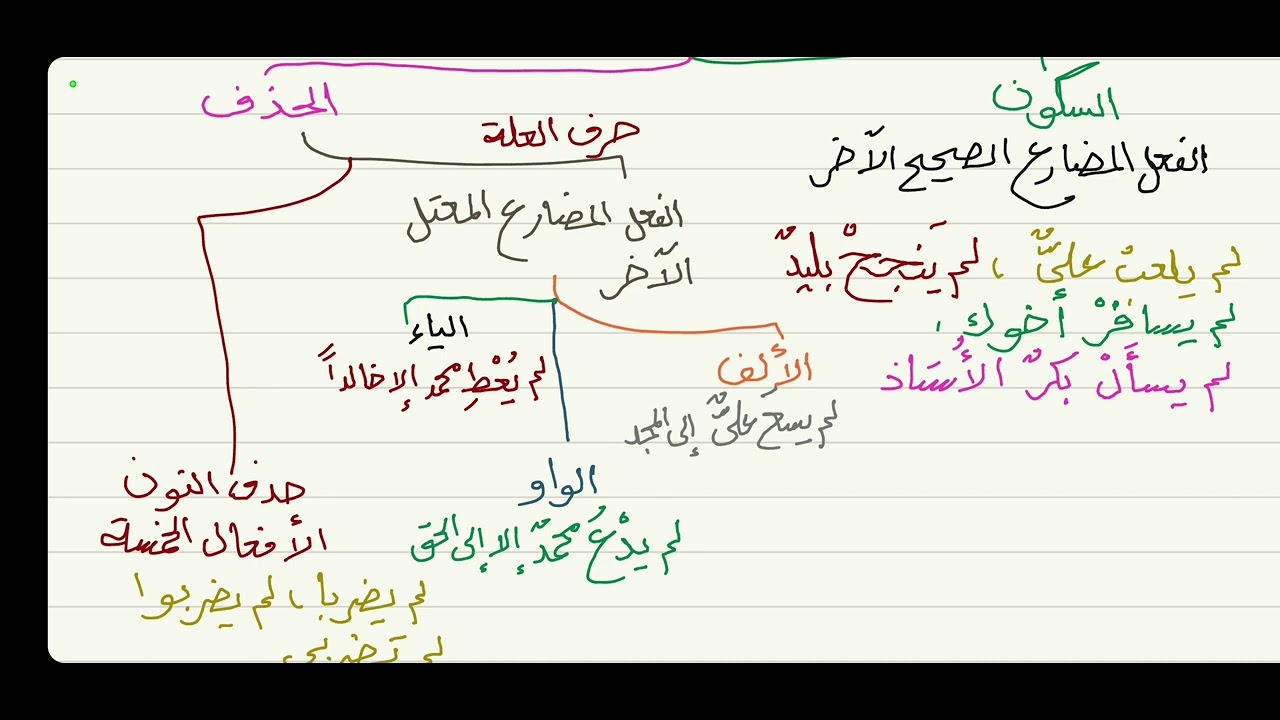 السكون
الفعل المضارع الصحيح الآخر
لم يلعبْ عليٌّ ، لم يَنجحْ بليدٌ
لم يسافرْ أخوك ،
لم يسألْ بكرٌ الأُستاذ
الحذف
حرف العلة
الفعل المضارع المعتل
الآخر
الألف
لم يسعَ عليٌّ إلى المجد
الواو
لم يدْعُ محمدٌ إلا إلى الحق
الياء
لم يُعْطِ محمد إلا خالداً
حذف النون
الأفعال الخمسة
لم يضربا ، لم يضربوا
لم تضربي